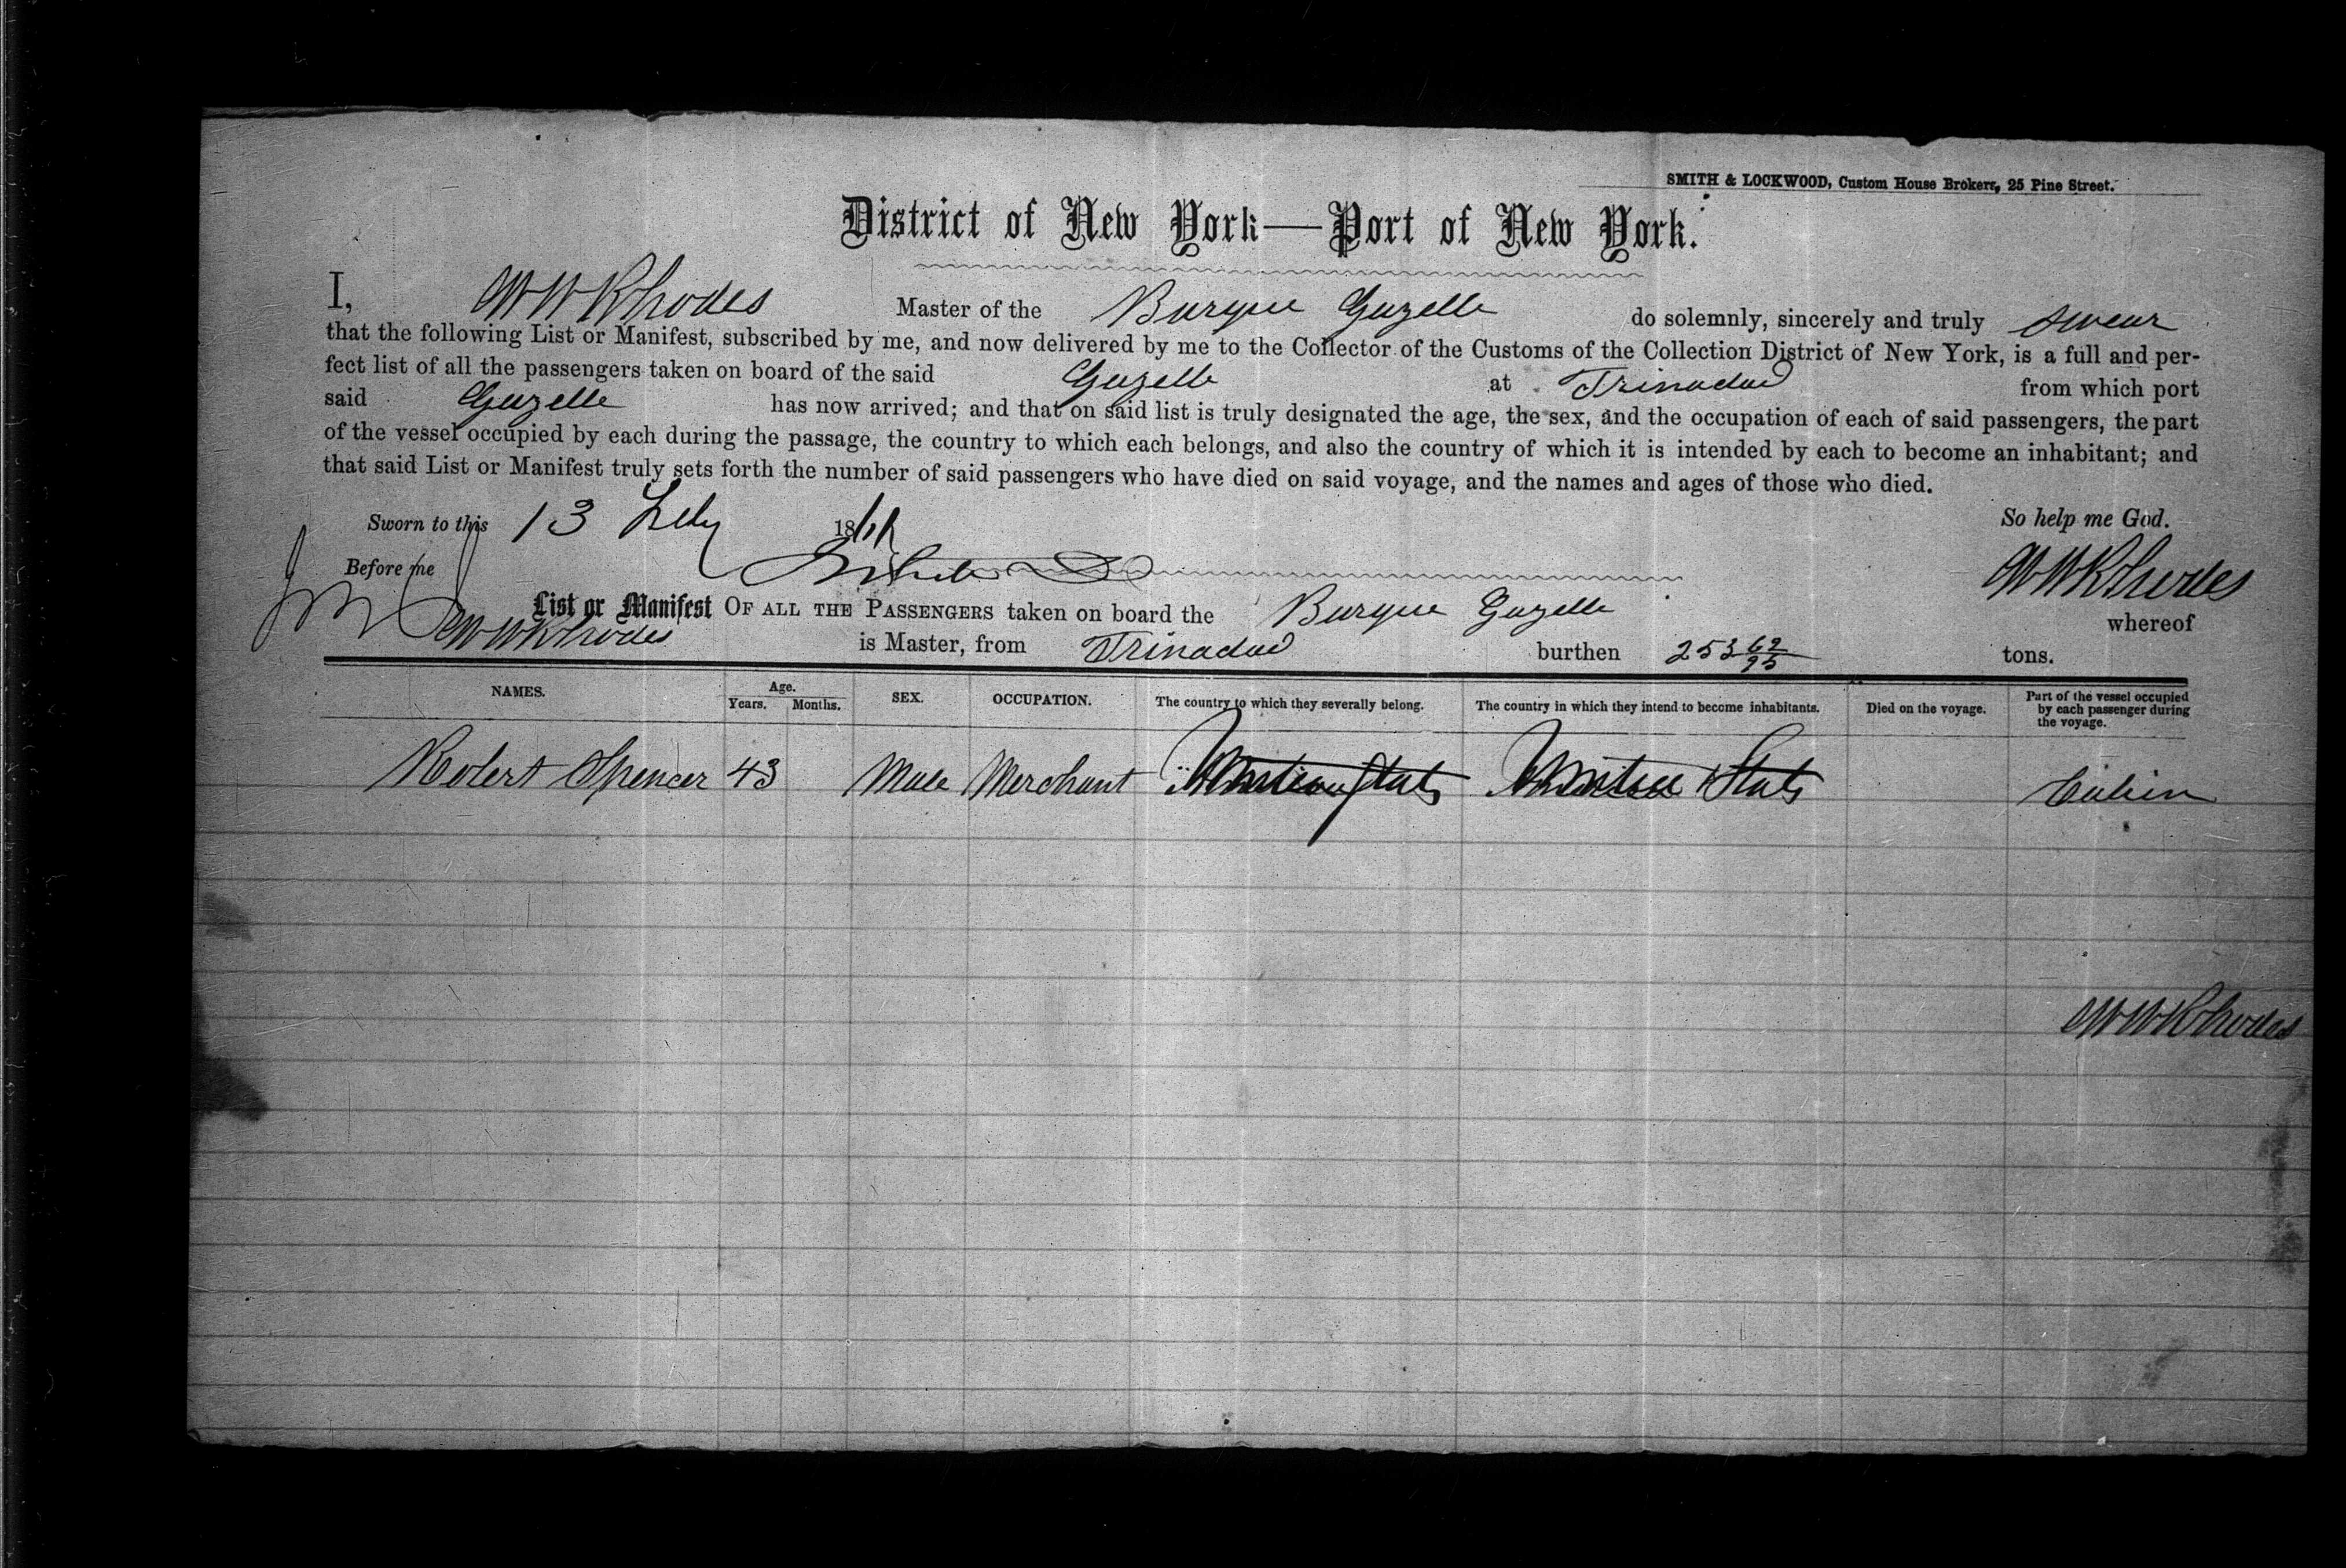 SMITH & LOCKWOOD, Custom House Brokers, 25 Pine Street.
District of New York—Port of New York.
I, W W Rhodes Master of the Barque Gazelle do solemnly, sincerely and truly swear
that the following List or Manifest, subscribed by me, and now delivered by me to the Collector of the Customs of the Collection District of New York, is a full and per-
fect list of all the passengers taken on board of the said Gazelle at Trinadad from which port
said Gazelle has now arrived; and that on said list is truly designated the age, the sex, and the occupation of each of said passengers, the part
of the vessel occupied by each during the passage, the country to which each belongs, and also the country of which it is intended by each to become an inhabitant; and
that said List or Manifest truly sets forth the number of said passengers who have died on said voyage, and the names and ages of those who died.
Sworn to this 13 18 So help me God.
Before me W W Rhodes
List or Manifest OF ALL THE PASSENGERS taken on board the Barque Gazelle whereof
W W Rhodes is Master, from Trinadad burthen 253 62/95 tons.
NAMES. Age. Years. Months. SEX. OCCUPATION. The country to which they severally belong. The country in which they intend to become inhabitants. Died on the voyage. Part of the vessel occupied by each passenger during the voyage.
Robert Spencer 43 Male Merchant States United States Cabin
W W Rhodes